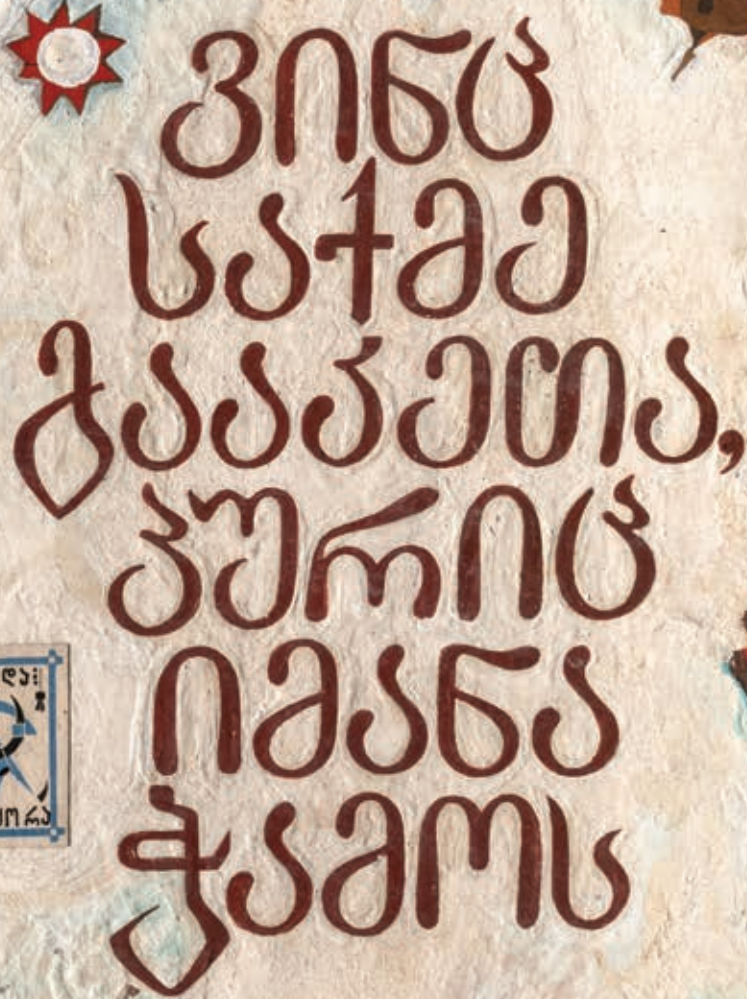 ვინც
საქმე
გააკეთა,
პურიც
იმანა
ჭამოს